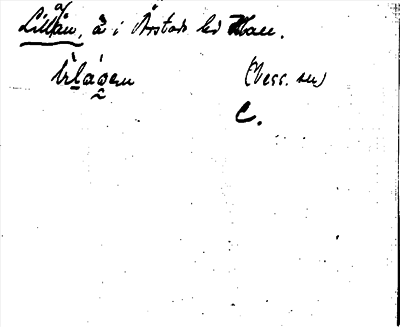 Lillån, å i Årstads hd Hall.
(Vess. sn)
C.